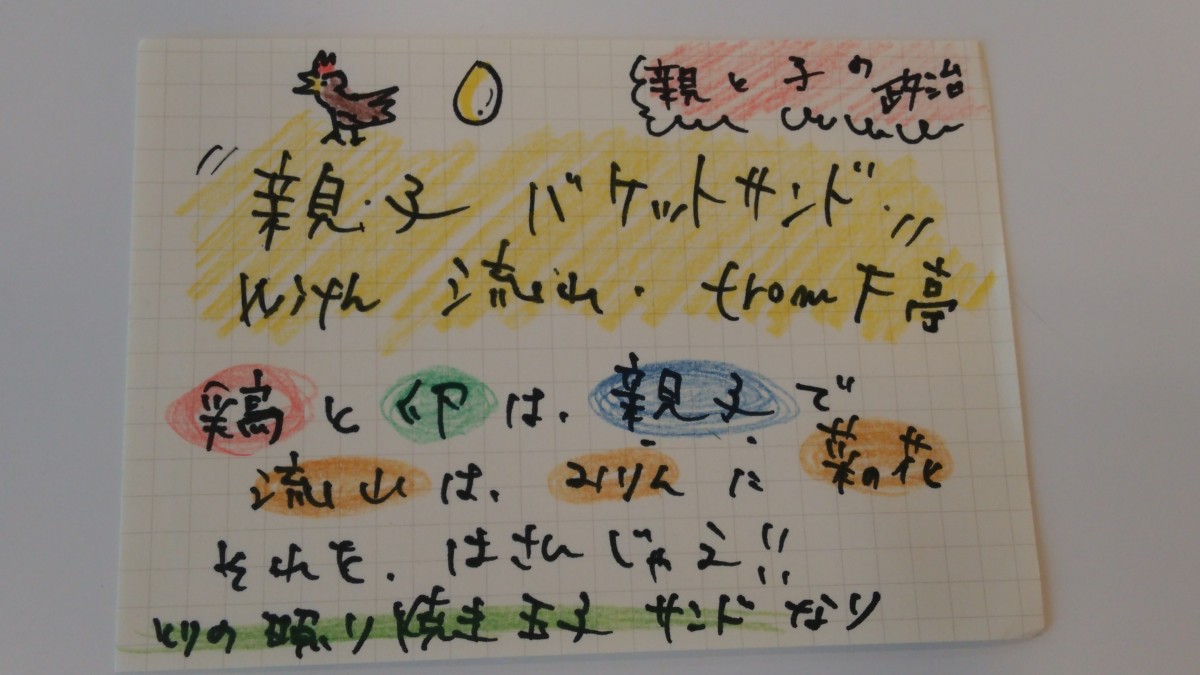 親と子の政治
"親子 バケットサンド"
with 流山. from 下亭
鶏と卵は、親子で
流山は、みりんに菜の花
それを、はさんじゃう!!
とりの照り焼き玉子サンドなり